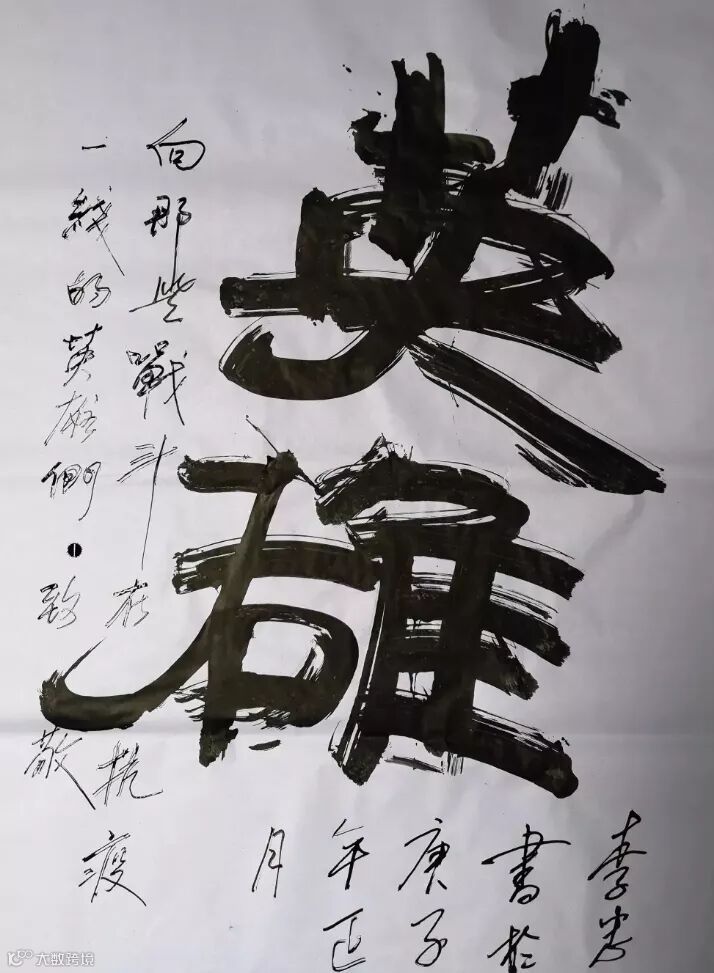 英雄
向那些戰斗在抗疫
一綫的英雄們·致敬
李
書於
庚子
年正
月
大数跨境